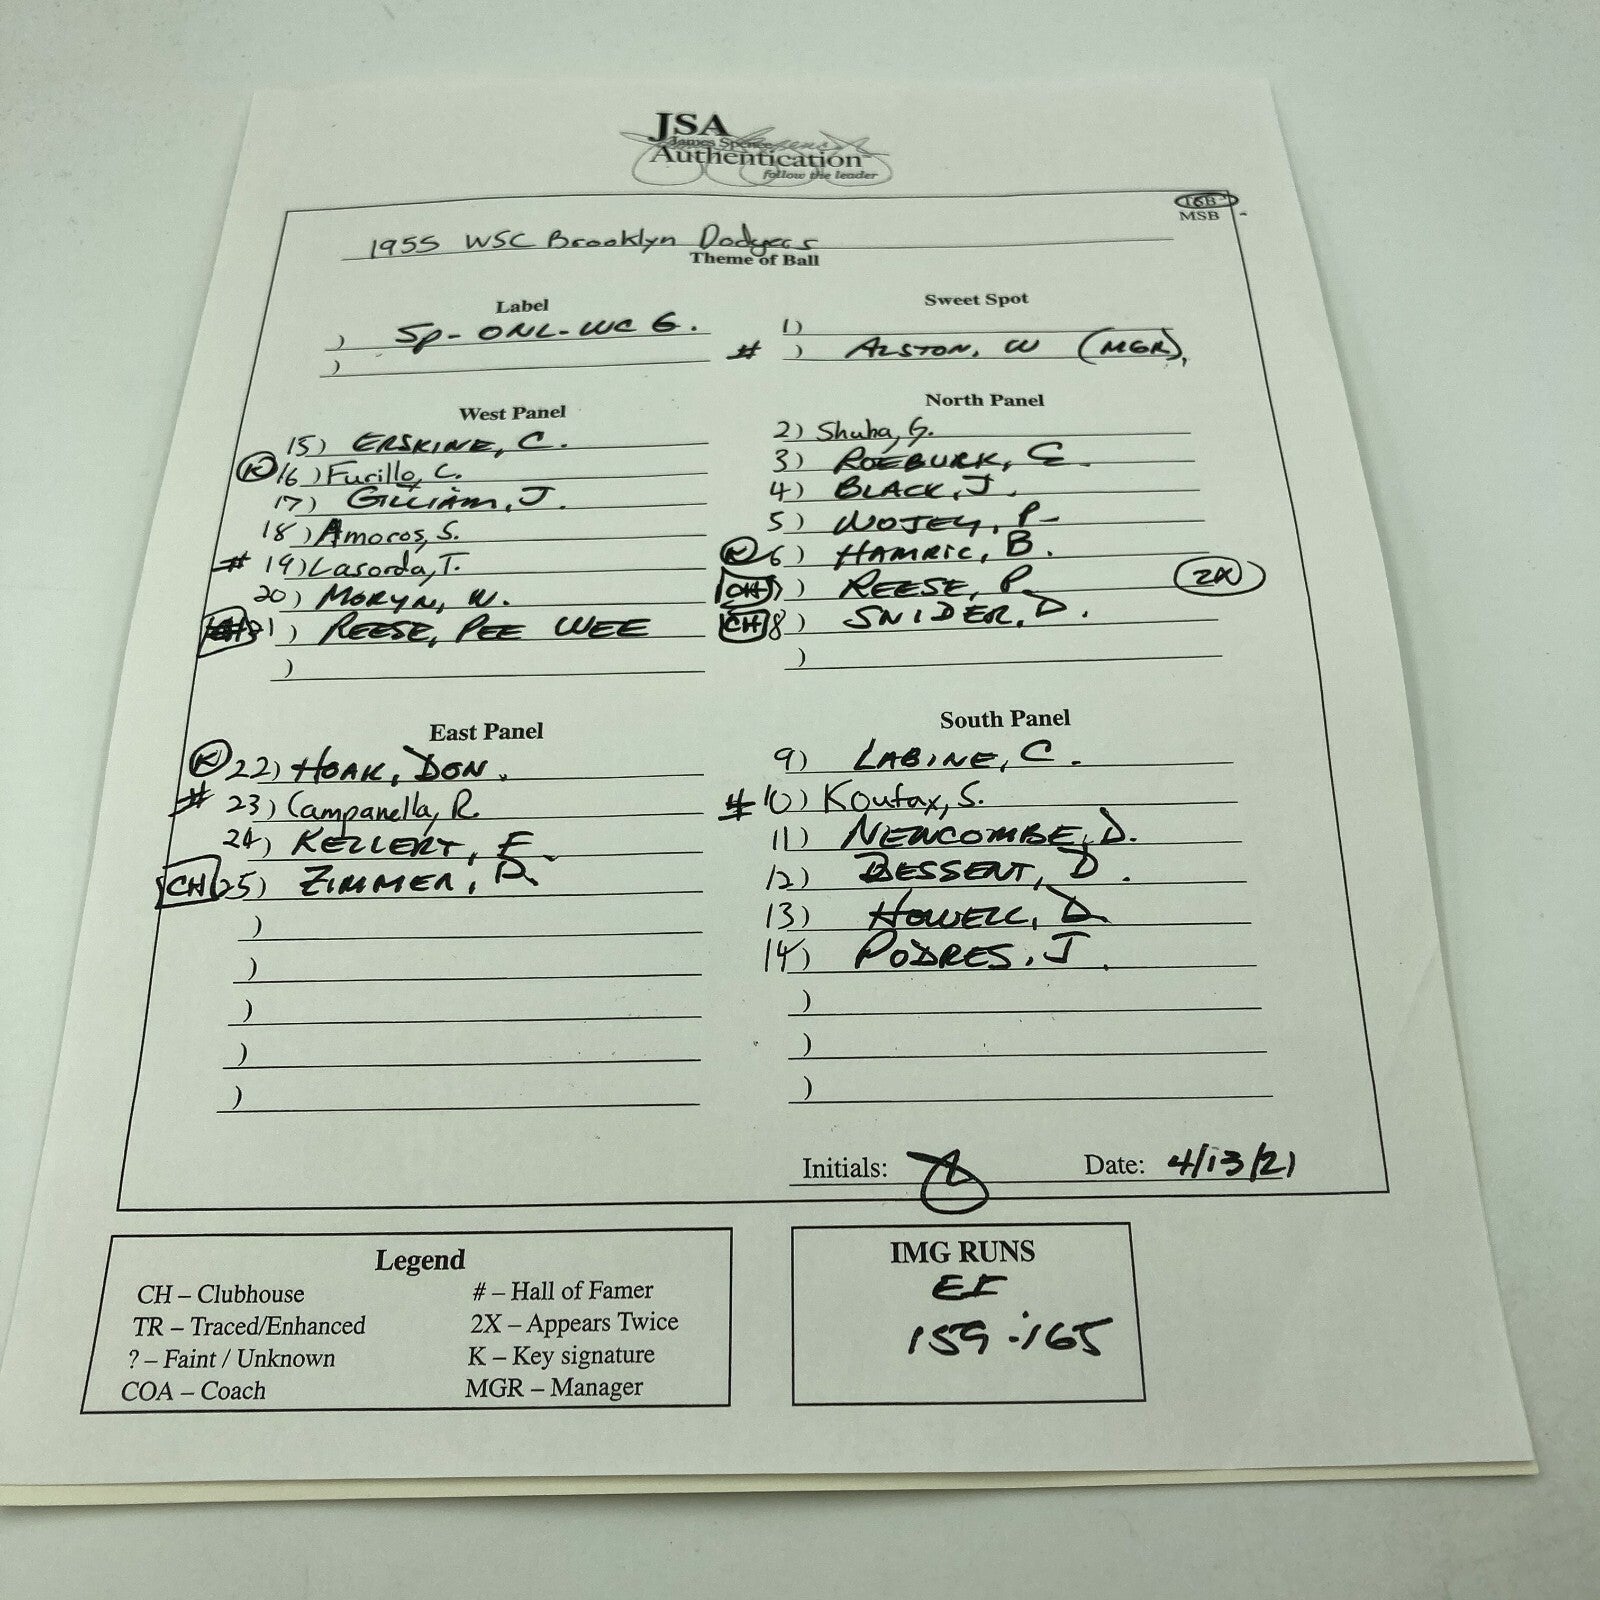 JSA
James Spence
Authentication
follow the leader
MSB
1955 WSC Brooklyn Dodgers
Theme of Ball
Label
) Sp- ONL- WC G.
)
Sweet Spot
1)
# ) ALSTON, W (MGR),
West Panel
15) ERSKINE, C.
(K) 16) Furillo, C.
17) GILLIAM, J.
18) Amoros, S.
# 19) Lasorda, T.
20) MORYN, W.
21) REESE, PEE WEE
)
North Panel
2) Shuba, G.
3) ROEBURK, E.
4) BLACK, J.
5) WOJEY, P-
(K) 6) HAMRIC, B.
CH 7) REESE, P. 2X
CH 8) SNIDER, D.
)
East Panel
(K) 22) HOAK, DON.
# 23) Campanella, R.
24) KELLERT, F.
CH 25) ZIMMER, D.
)
)
)
)
)
South Panel
9) LABINE, C.
# 10) Koufax, S.
11) NEWCOMBE, D.
12) BESSENT, D.
13) HOWELL, D.
14) PODRES, J.
)
)
)
Initials:
Date: 4/13/21
Legend
CH – Clubhouse
TR – Traced/Enhanced
? – Faint / Unknown
COA – Coach
# – Hall of Famer
2X – Appears Twice
K – Key signature
MGR – Manager
IMG RUNS
159-165